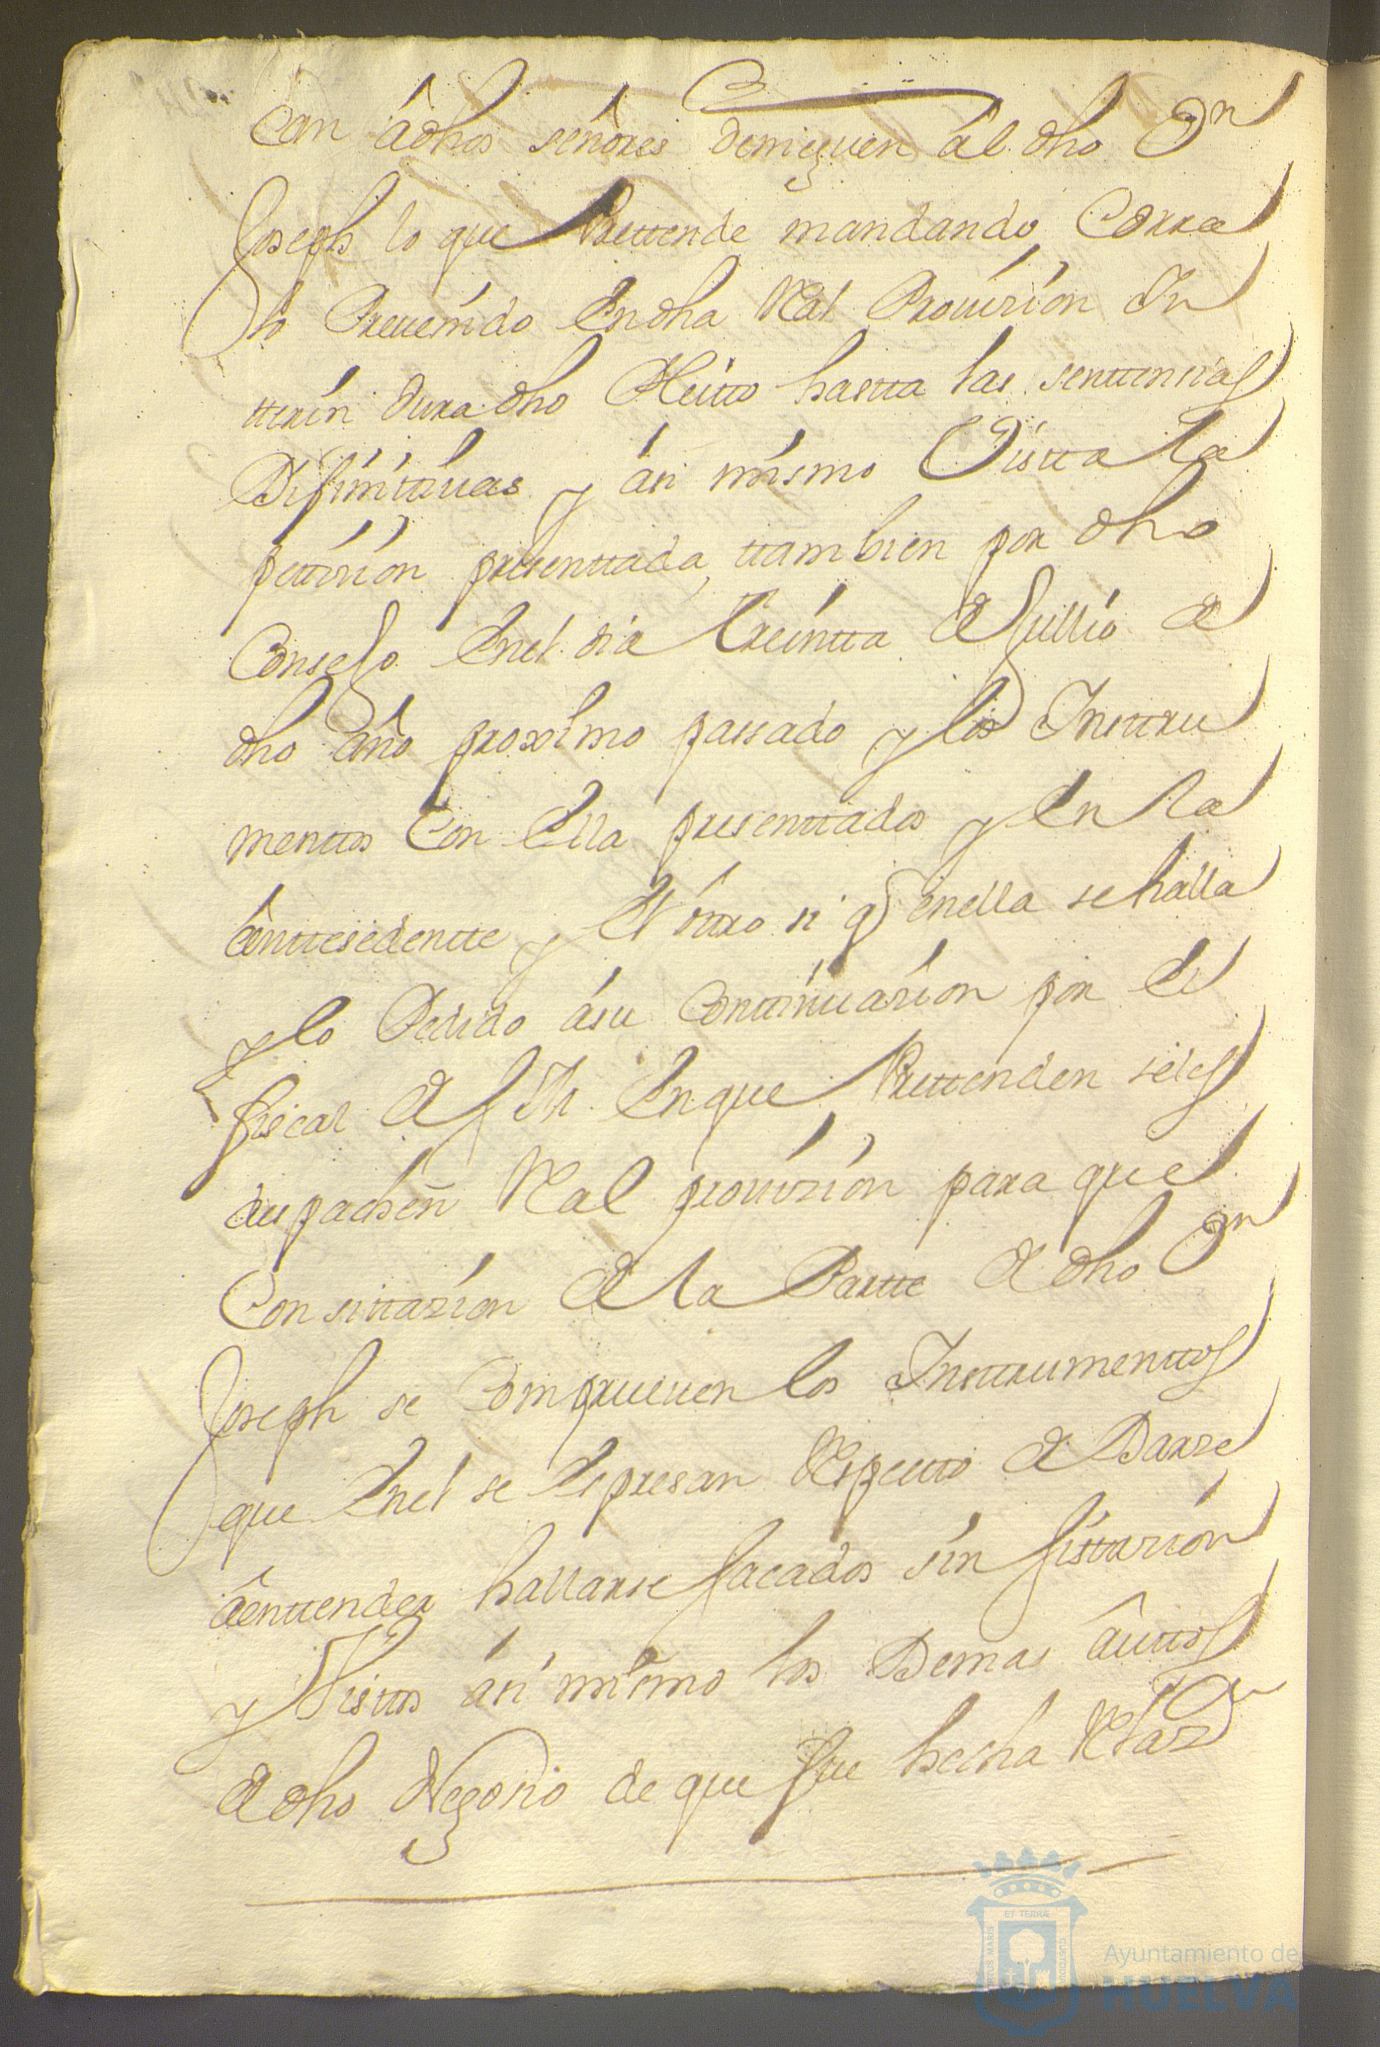 can â dhos señores denieguen âl dho Dn
Joseph lo que Prettende mandando Corra
lo Preuenido en dha Ral Prouision in
tterin dura dho Pleitto hastta las senttencias
Difinitiuas y asi mismo Vistta la
petision presenttada ttambien por dho
Consejo en el dia treintta de Jullio de
dho año proximo passado y los Insttru
menttos con ella presenttados y en la
ânttesedentte y el ottro si q enella se halla
y lo Pedido a su Conttinuasion por el
fiscal de S. M. en que Prettenden se les
despachen Ral prouizion para que
Con sittazion de la Partte de dho Dn
Joseph se Comprueuen los Insttrumenttos
que en el se espresan Respectto de Darse
â enttender hallarse sacados sin sittazion
y Visttos asi mismo los Demas âuttos
de dho Negosio de que fue hecha Relaz
Ayuntamiento de
HUELVA